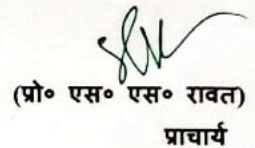 (प्रो० एस० एस० रावत)
प्राचार्य